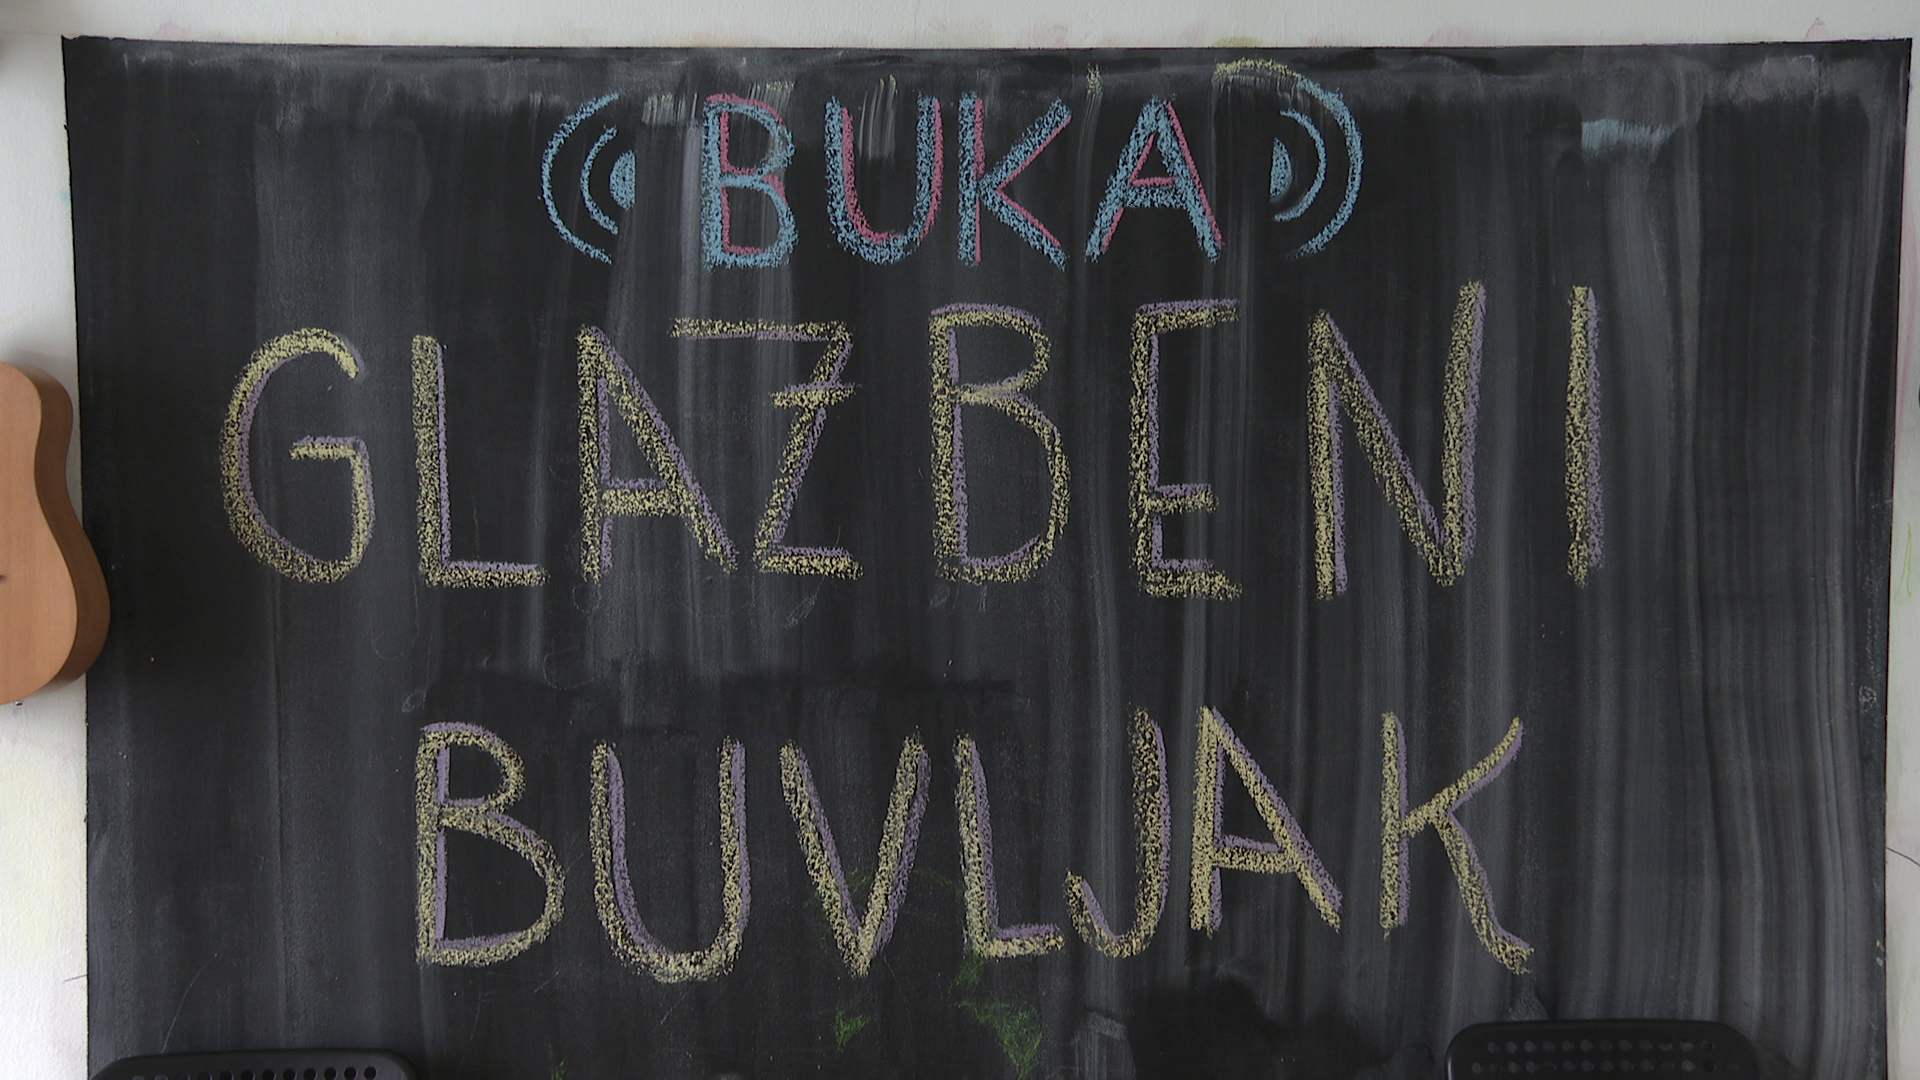 BUKA
GLAZBENI
BUVLJAK